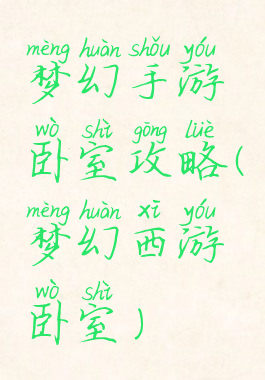 mèng huàn shǒu yóu
梦幻手游
wò shì gōng lüè
卧室攻略(
mèng huàn xī yóu
梦幻西游
wò shì
卧室)